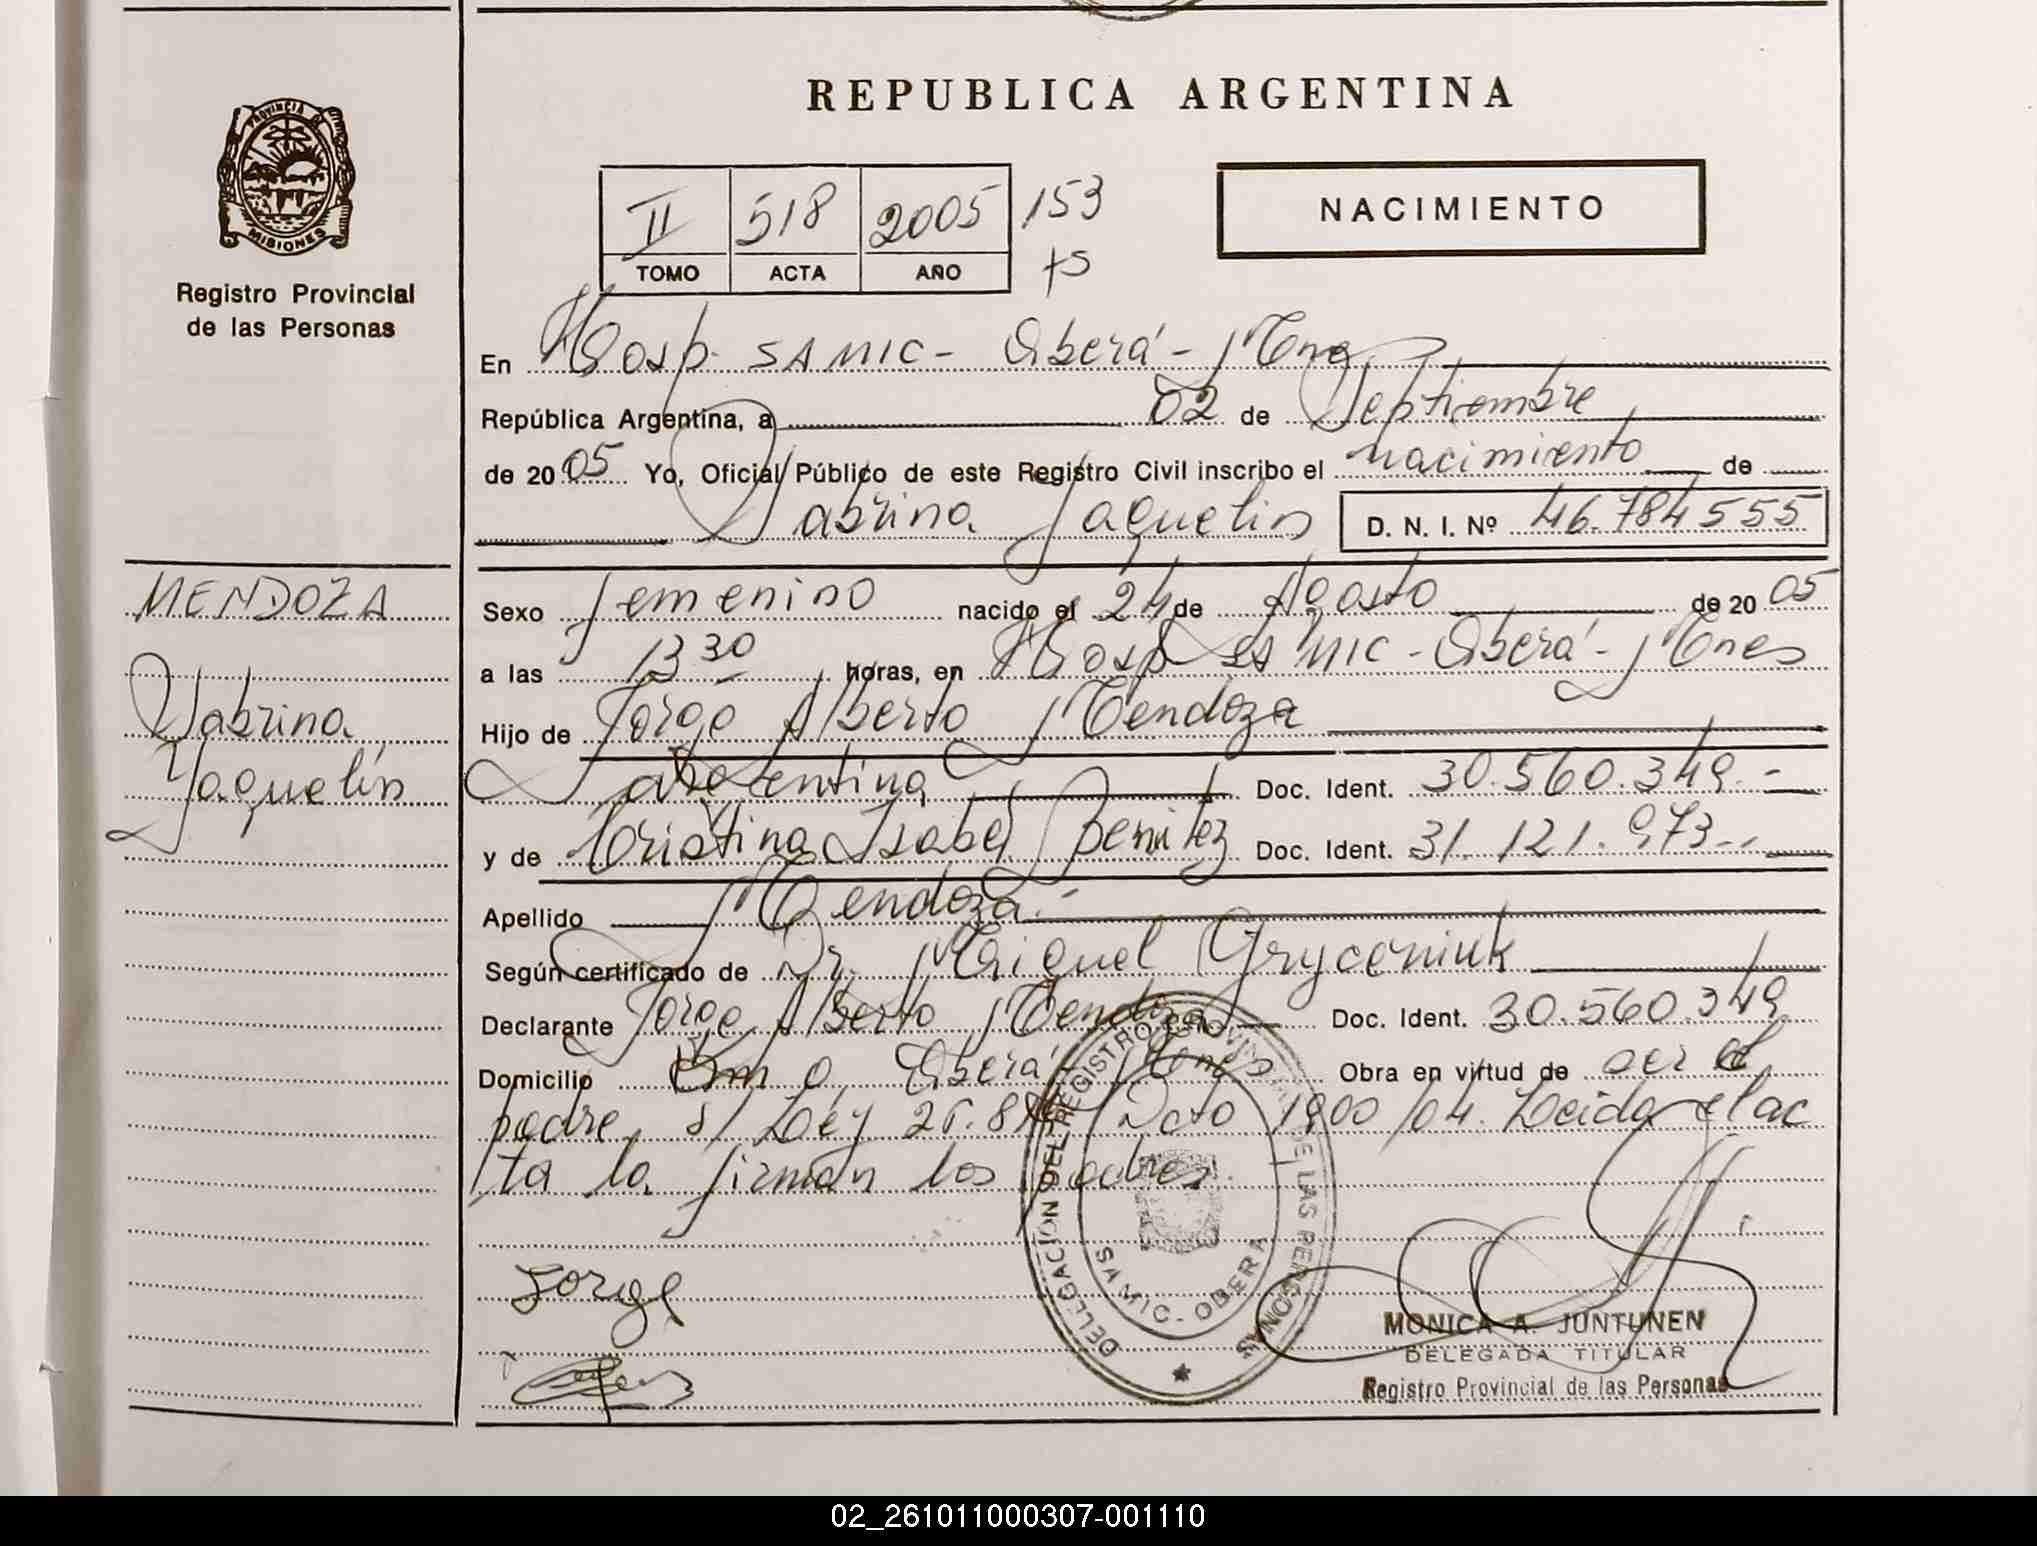 REPUBLICA ARGENTINA
PROVINCIA DE
MISIONES
Registro Provincial
de las Personas
II 518 2005 153
TOMO ACTA AÑO
NACIMIENTO
En Hosp. SAMIC - Oberá - Mnes
República Argentina, a 02 de Septiembre
de 2005 Yo, Oficial Público de este Registro Civil inscribo el nacimiento de
Sabrina Yaquelin D. N. I. Nº 46.784555
MENDOZA
Sabrina
Yaquelin
Sexo femenino nacido el 24 de Agosto de 2005
a las 13 30 horas, en Hosp SAMIC - Oberá - Mnes
Hijo de Jorge Alberto Mendoza
argentina Doc. Ident. 30.560.349.-
y de Cristina Isabel Benitez Doc. Ident. 31.121.973.-
Apellido Mendoza.-
Según certificado de Dr. Miguel Gryceniuk
Declarante Jorge Alberto Mendoza Doc. Ident. 30.560.349
Domicilio Oberá Mnes Obra en virtud de ser el
padre s/ Ley Dcto 1900/04. Leida el ac
ta la firman los padres.
Jorge
DELEGACION DEL REGISTRO PROVINCIAL DE LAS PERSONAS
SAMIC - OBERA
MONICA A. JUNTUNEN
DELEGADA TITULAR
Registro Provincial de las Personas
02_261011000307-001110